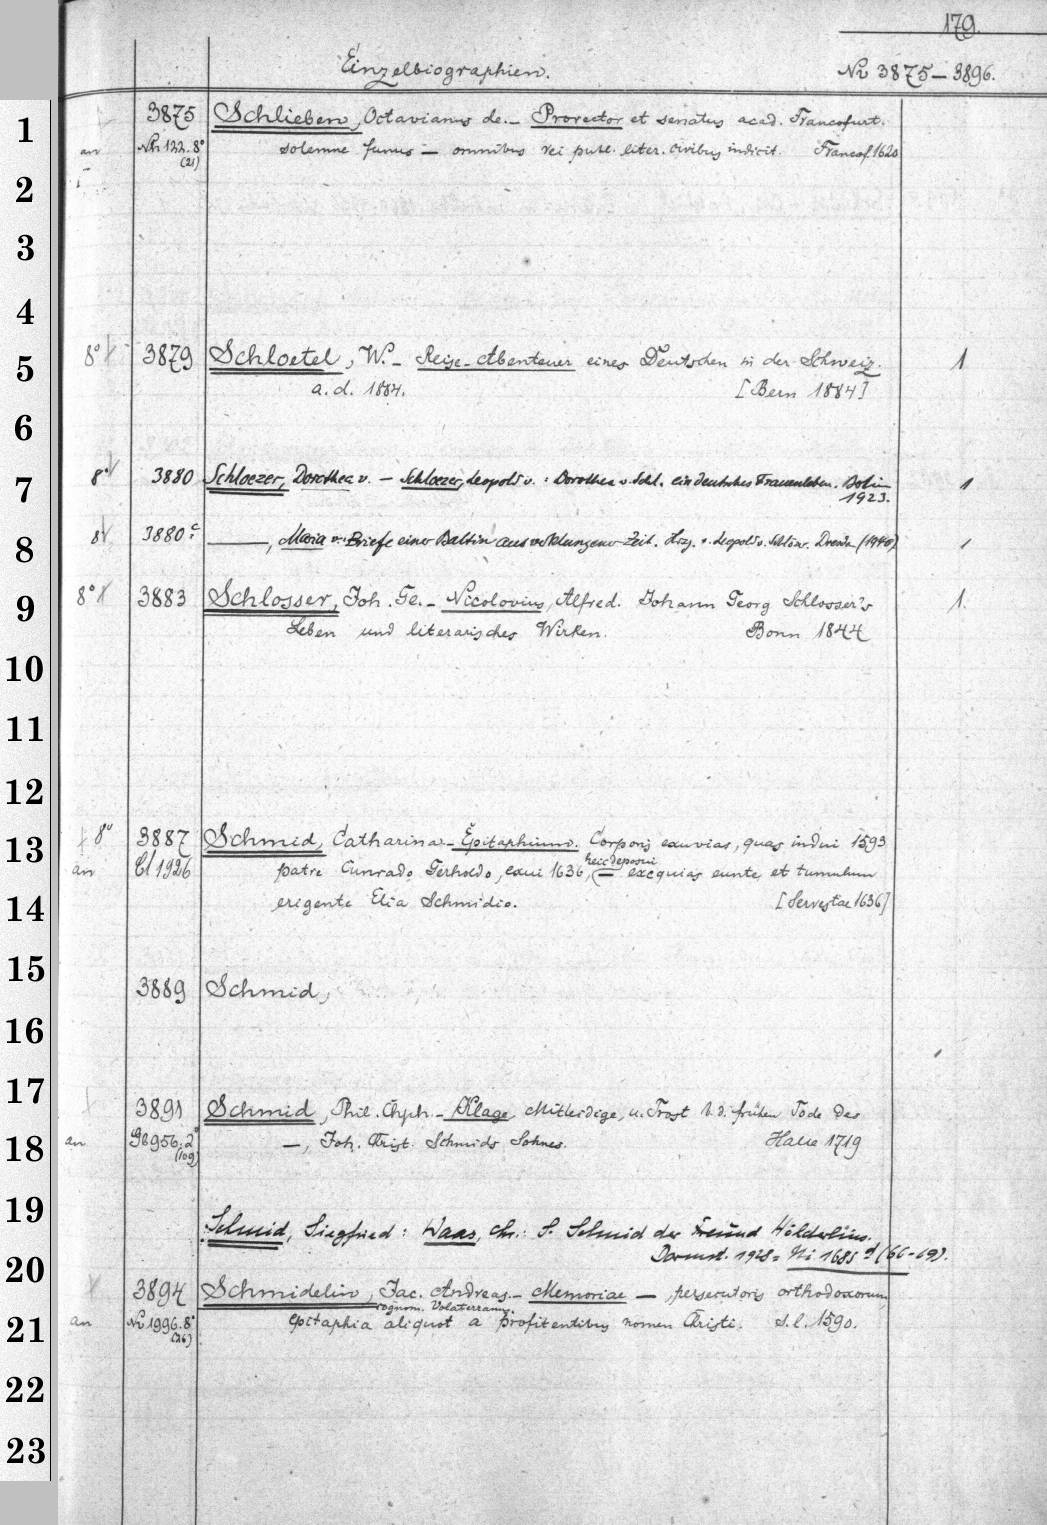 179.
Einzelbiographien. No 3875–3896.
1 3875 Schlieben, Octavianus de.– Prorector et senatus acad. Francofurt.
an Nh 122.8° (21) solemne funus — omnibus rei publ. liter. civibus indicit. Francof. 1620
2
3
4
5 8° 3879 Schloetel, W.– Reise-Abenteuer eines Deutschen in der Schweiz. 1
a.d. 1884. [Bern 1884]
6
7 8° 3880 Schloezer, Dorothea v. – Schloezer, Leopold v.: Dorothea v. Schl. ein deutsches Frauenleben. Berlin 1923. 1
8 8° 3880 c ———, Maria v.: Briefe einer Baltin aus verklungener Zeit. Hrg. v. Leopold v. Schlözer. Dresden (1940) 1
9 8° 3883 Schlosser, Joh. Ge.– Nicolovius, Alfred. Johann Georg Schlosser's 1.
Leben und literarisches Wirken. Bonn 1844
10
11
12
13 8° 3887 Schmid, Catharina.– Epitaphium. Corporis exuvias, quas indui 1593
an Cl 1926 patre Cunrado Gerholdo, exui 1636, heic deposui — exequias eunte, et tumulum
14 erigente Elia Schmidio. [Servestae 1636]
15 3889 Schmid,
16
17 3891 Schmid, Phil. Chph.– Klage, Mitleidige, u. Trost b. d. frühen Tode des
18 an Gb 956.2° (109) —, Joh. Christ. Schmids Sohnes. Halle 1719
19 Schmid, Siegfried: Waas, Chr.: S. Schmid der Freund Hölderlins.
20 Darmst. 1928 = Ni 1685 d (66-69).
3894 Schmidelin, Jac. Andreas.– Memoriae —, persecutoris orthodoxorum
cognom. Volaterranus.
21 an No 1996.8° (26) epitaphia aliquot a profitentibus nomen Christi. s.l. 1590.
22
23